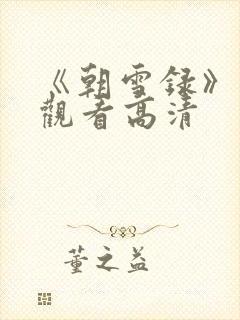 《朝雪録》
觀看高清
董之益